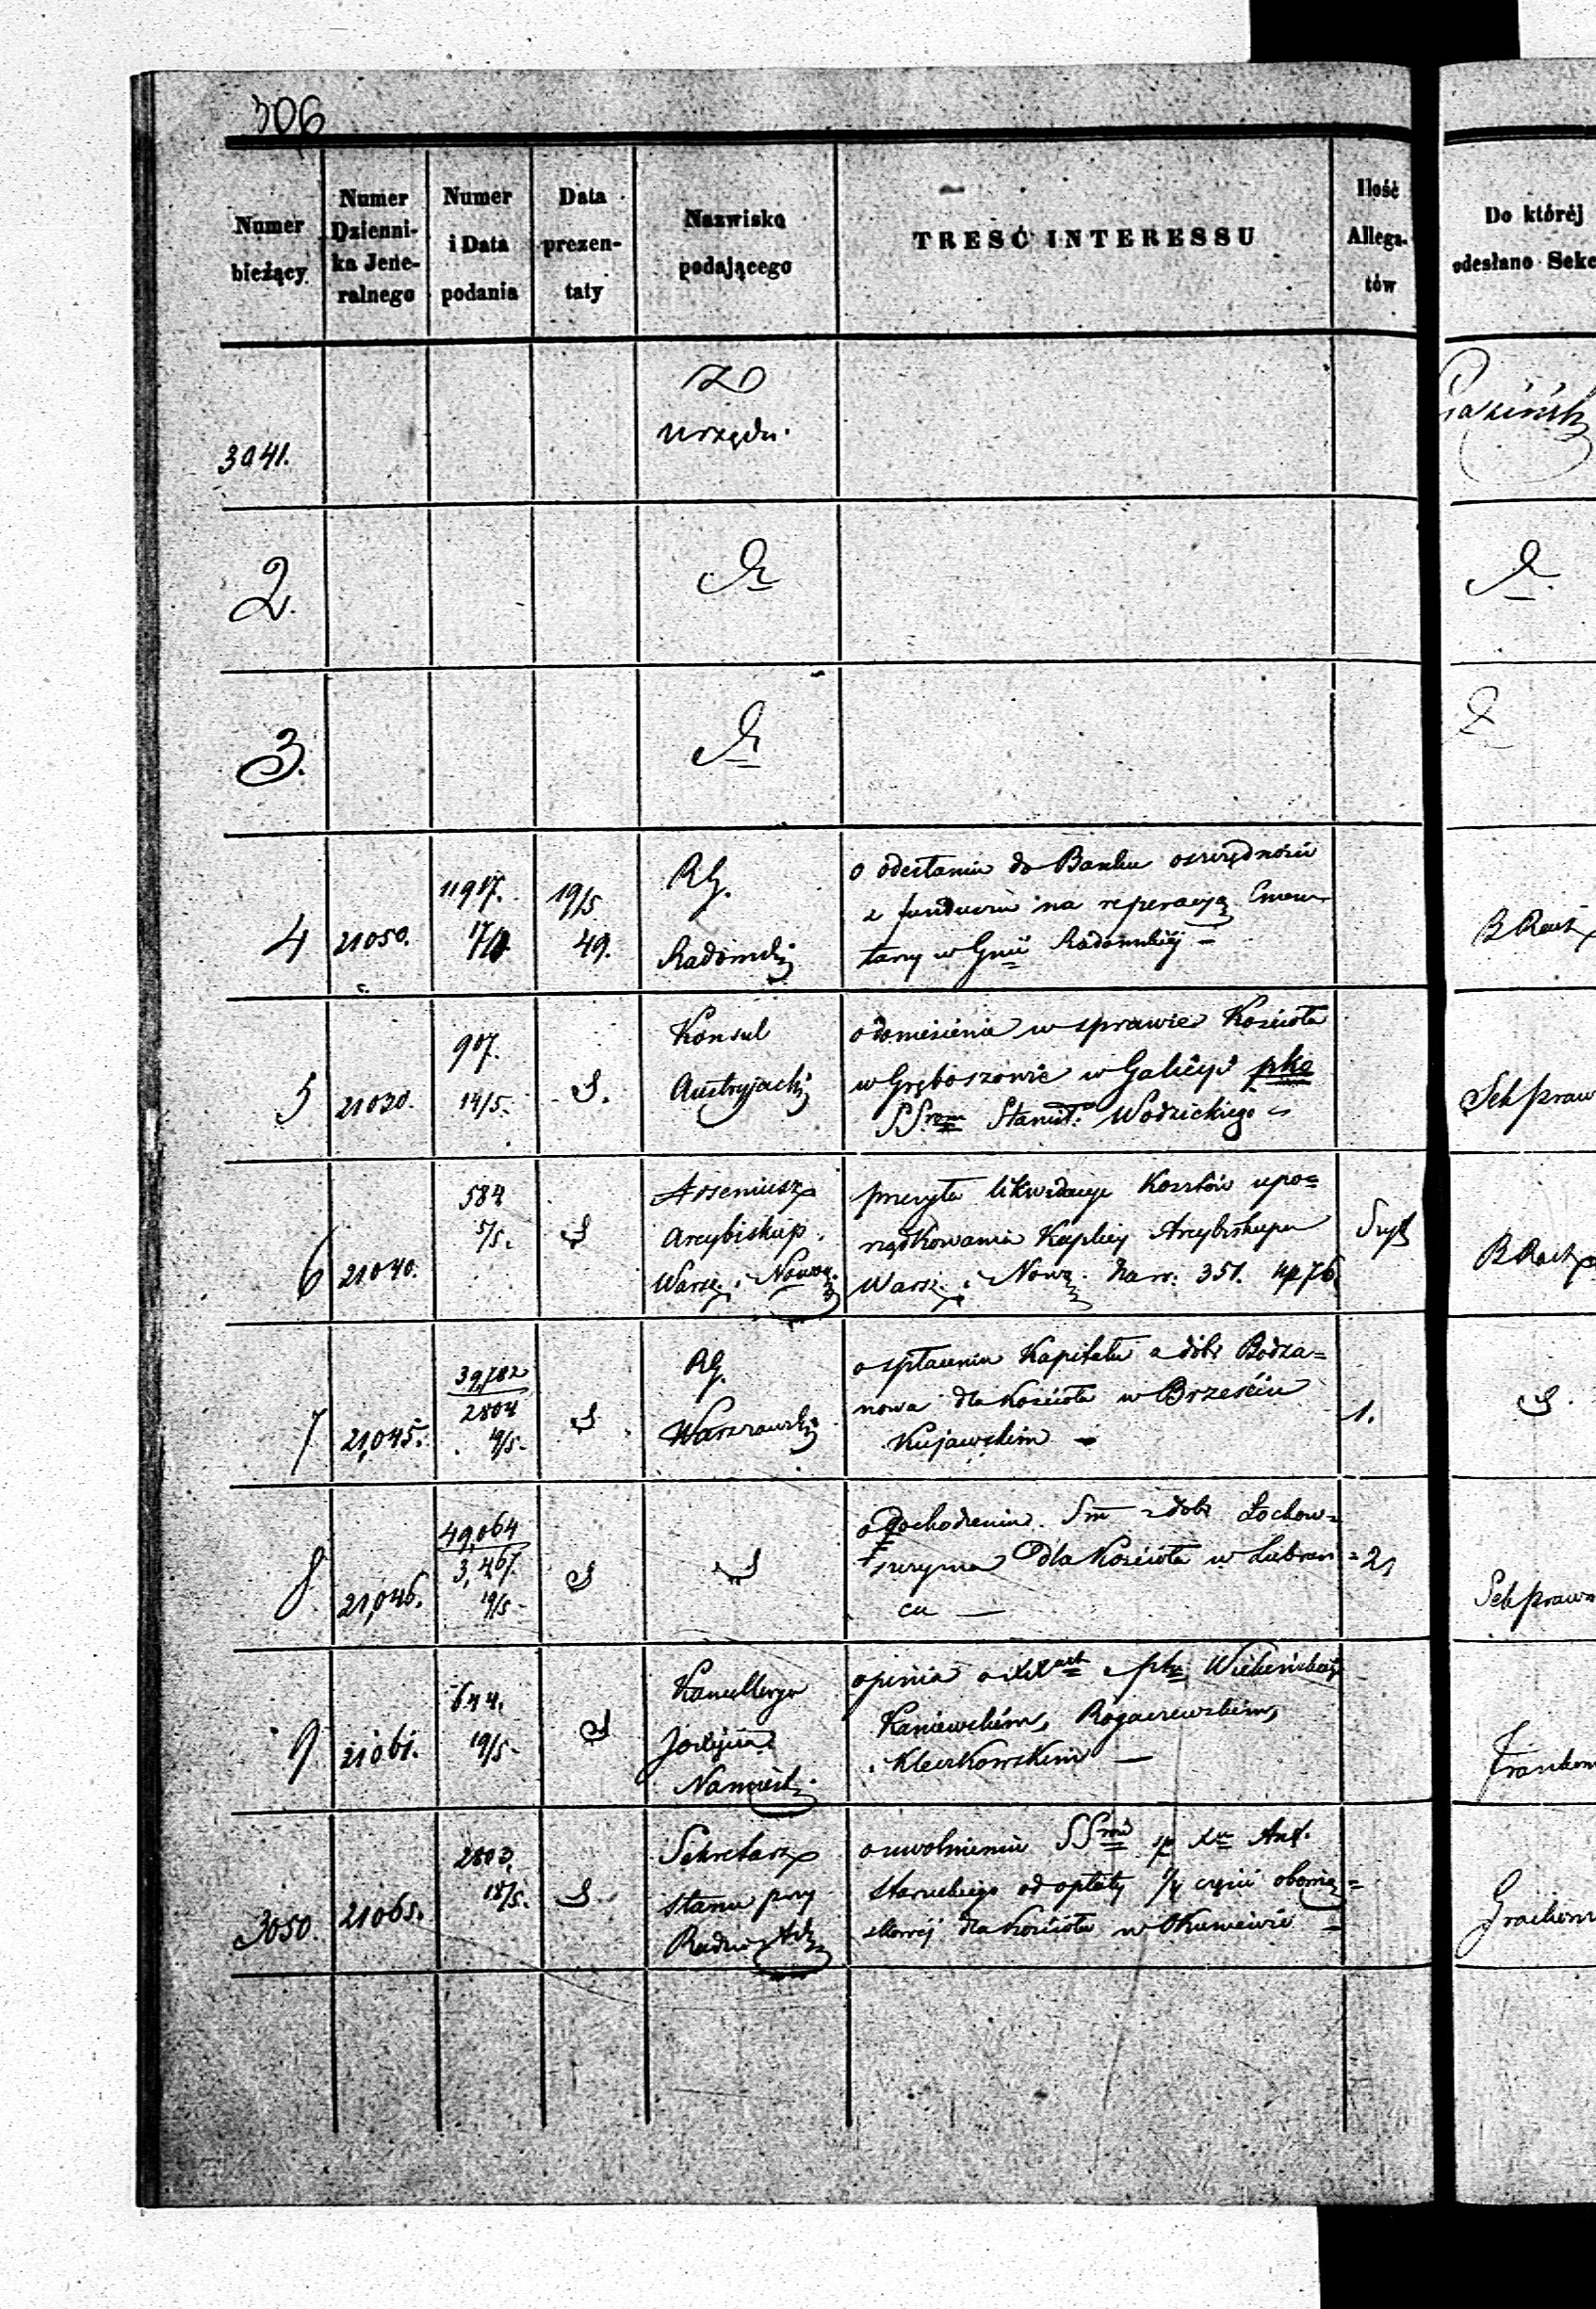 306
Numer bieżący
Numer Dzienni- ka Jene- ralnego
Numer i Data podania
Data prezen- taty
Nazwisko podającego
TREŚĆ INTERESSU
Ilość Allega- tów
Do któréj odesłano Sekc
3041.
Z
urzędu.
2.
3.
4
21050.
11917.
19/5
49.
RG.
Radomski
o odesłaniu do Banku oszczędności
z funduszu na reperacyą Cmen-
tarzy w Gnii Radomskiéj –
5
21030.
907.
14/5.
Konsul
Austryjacki
o doniesienie w sprawie Kościoła
w Gręboszowie w Galicyi pko
SSrom Stanisł. Wodzickiego
Sek praw
6
21040.
584
5/5.
Arseniusz
Arcybiskup.
Warsz. i Nowog.
przesyła likwidacye Kosztów upo=
rządkowania Kaplicy Arcybiskupa
Warsz. i Nowog. na rs. 351. kp 76
7
21,045.
39,782
2804
19/5.
RG.
Warszawski
o spłaceniu Kapitału z dóbr Bodza=
nowa dla Kościoła w Brześciu
Kujawskim –
1.
8
21,046.
49,064
3,467.
19/5 –
o dochodzeniu Sm z dóbr Łochow=
szczyzna dla Kościoła w Lubran =
cu —
2
Sek prawn
9
21061.
644.
19/5 –
Kancellarya
Namiest.
opinia o
Kaniewskim, Rogaczewskim,
i Kleczkowskim —
3050.
21065.
2803.
18/5.
Sekretarz
Stanu przy
Radzie Adm
o uwolnieniu SSrów śp Xa Ant.
od opłaty 1/4 części obowią=
zkowéj dla Kościoła w Okuniewie –